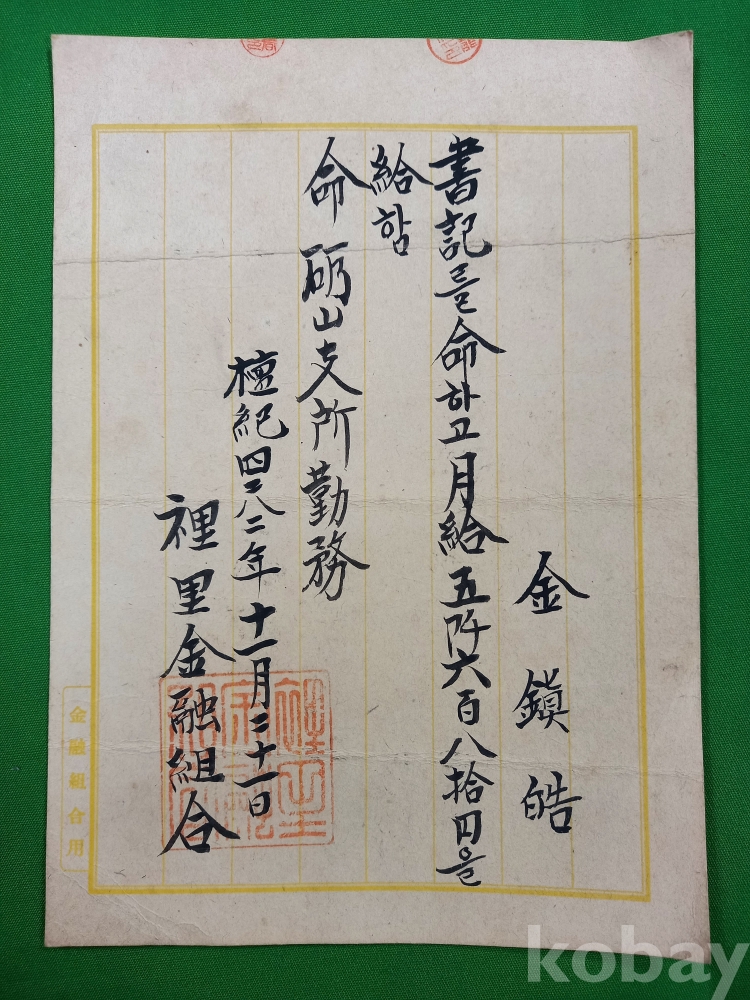 金鎭皓
書記를命하고月給五阡六百八拾円을
給함
命礪山支所勤務
檀紀四二八二年十一月二十一日
裡里金融組合
金融組合用
kobay